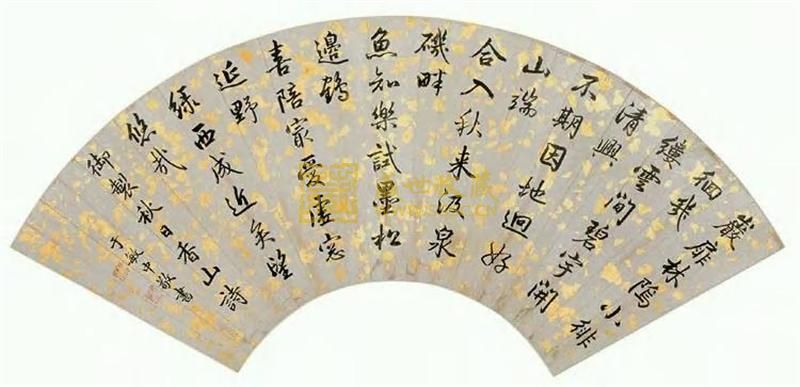 巖扉林隖小徘
徊幾
縷雲間碧宇開
清興
不期因地迥好
山端
合入秋来汲泉
磯畔
魚知樂試墨松
邊鶴
喜陪㝡愛虛窓
延野
綠西成近矣望
悠哉
御製秋日香山詩
于敏中敬書
盛世收藏